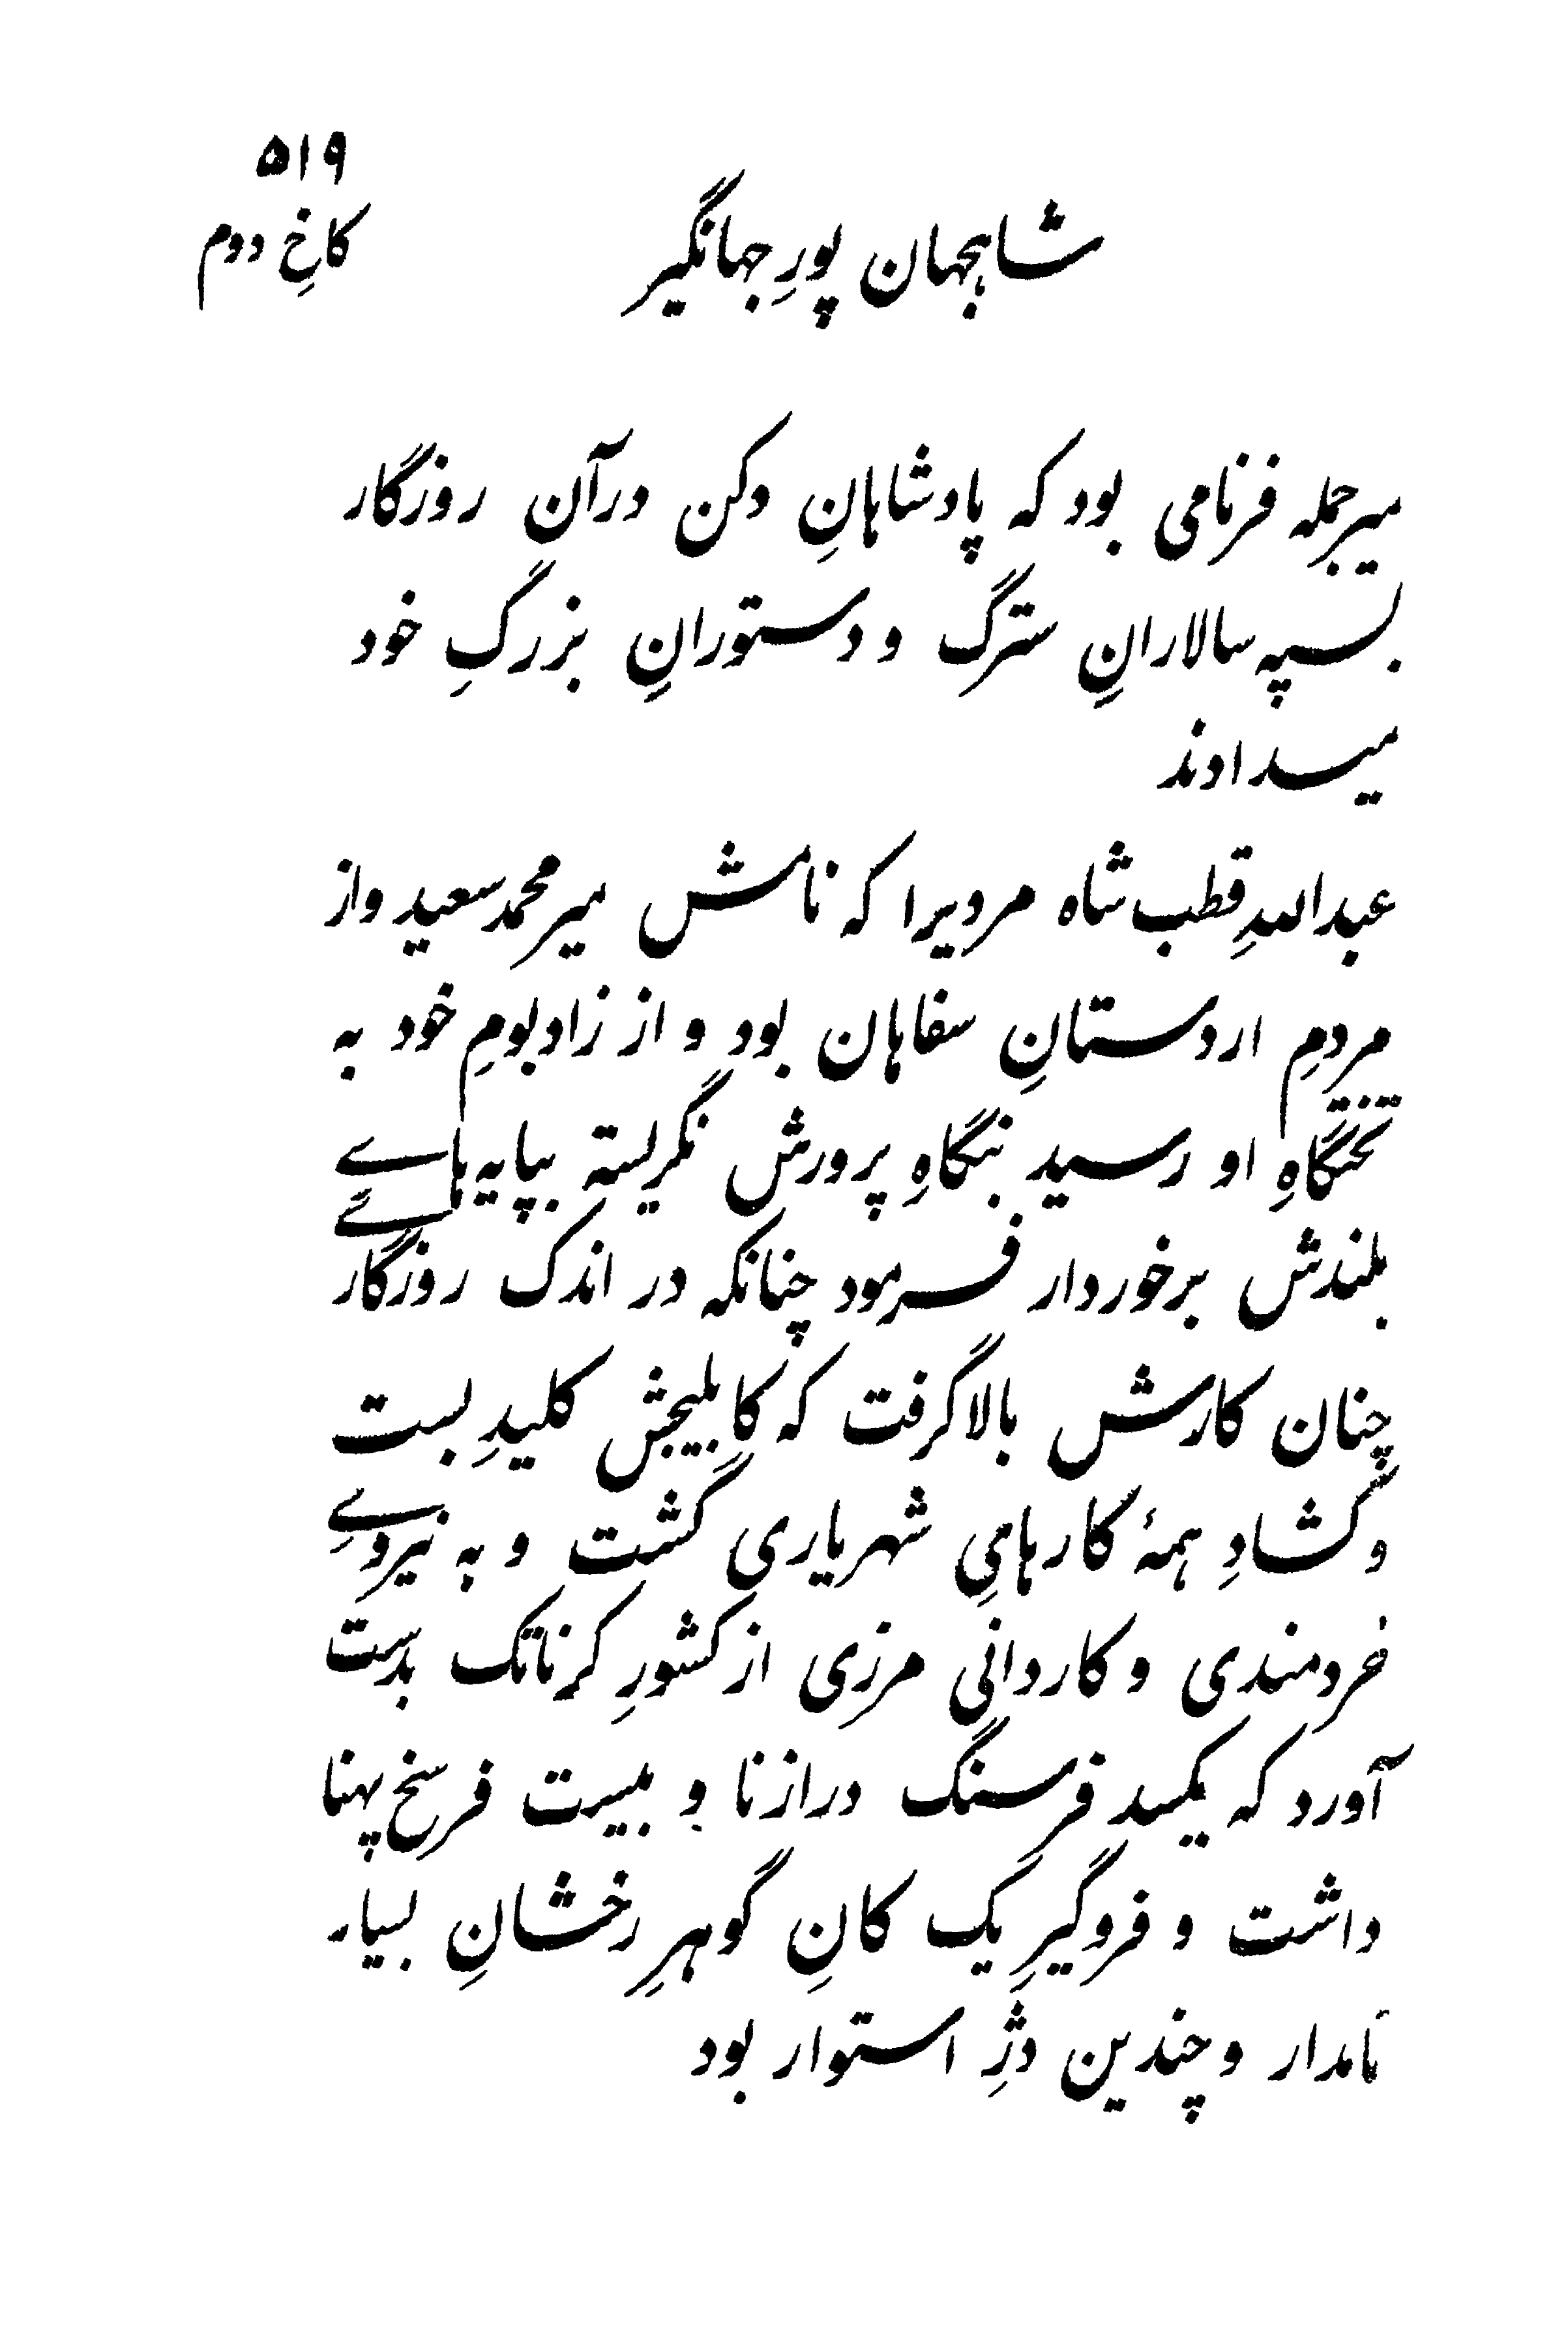 ۵۱۹
کاخِ دوم
شاهجهان پورِ جهانگیر
میرجمله فرنامی بود که پادشاهانِ دکن درآن روزگار
بسپه سالارانِ سترگ و دستورانِ بزرگِ خود
میدادند
عبداللهِ قطب شاه مردیرا که نامش میر محمد سعید واز
مردمِ اردستانِ سفاهان بود و از زادبومِ خود به
تختگاهِ او رسید بنگاهِ پرورش نگریسته بپایه‌هاے
بلندش برخوردار فرمود چنانکه در اندک روزگارے
چنان کارش بالا گرفت که کابلیجش کلیدِ بست
و گشادِ همهٔ کارهایِ شهریاری گشت و به نیروےِ
خردمندی و کاردانی مرزی از کشورِ کرناتک بدست
آورد که یکسد فرسنگ درازنا و بیست فرسخ پهنا
داشت و فروگیرِ یک کانِ گوهرِ رخشانِ بسیار
نامدار و چندین دژِ استوار بود